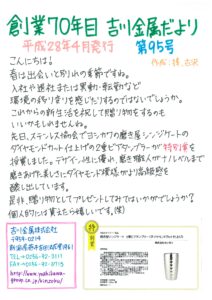 創業70年目 吉川金属だより
平成28年4月発行 第95号
こんにちは!
春は出会いと別れの季節ですね。
入社や退社または異動・転勤など
環境の移り変りを感じたりするのではないでしょうか。
これからの新生活を祝して贈り物をするのも
いいかもしれませんね。
先日、ステンレス協会でヨシカワの磨き屋シンジケートの
ダイヤモンドカット仕上げの2重ビアタンブラーが特別賞を
授賞しました。デザイン性に優れ、磨き職人が
磨きあげた美しさにダイヤモンド模様がより高級感を
醸し出しています。
是非、贈り物としてプレゼントしてみてはいかがでしょうか?
個人的には貰えたら嬉しいです。(笑)
吉川金属株式会社
〒959-0214
TEL→0256-92-3111
FAX→0256-92-5715